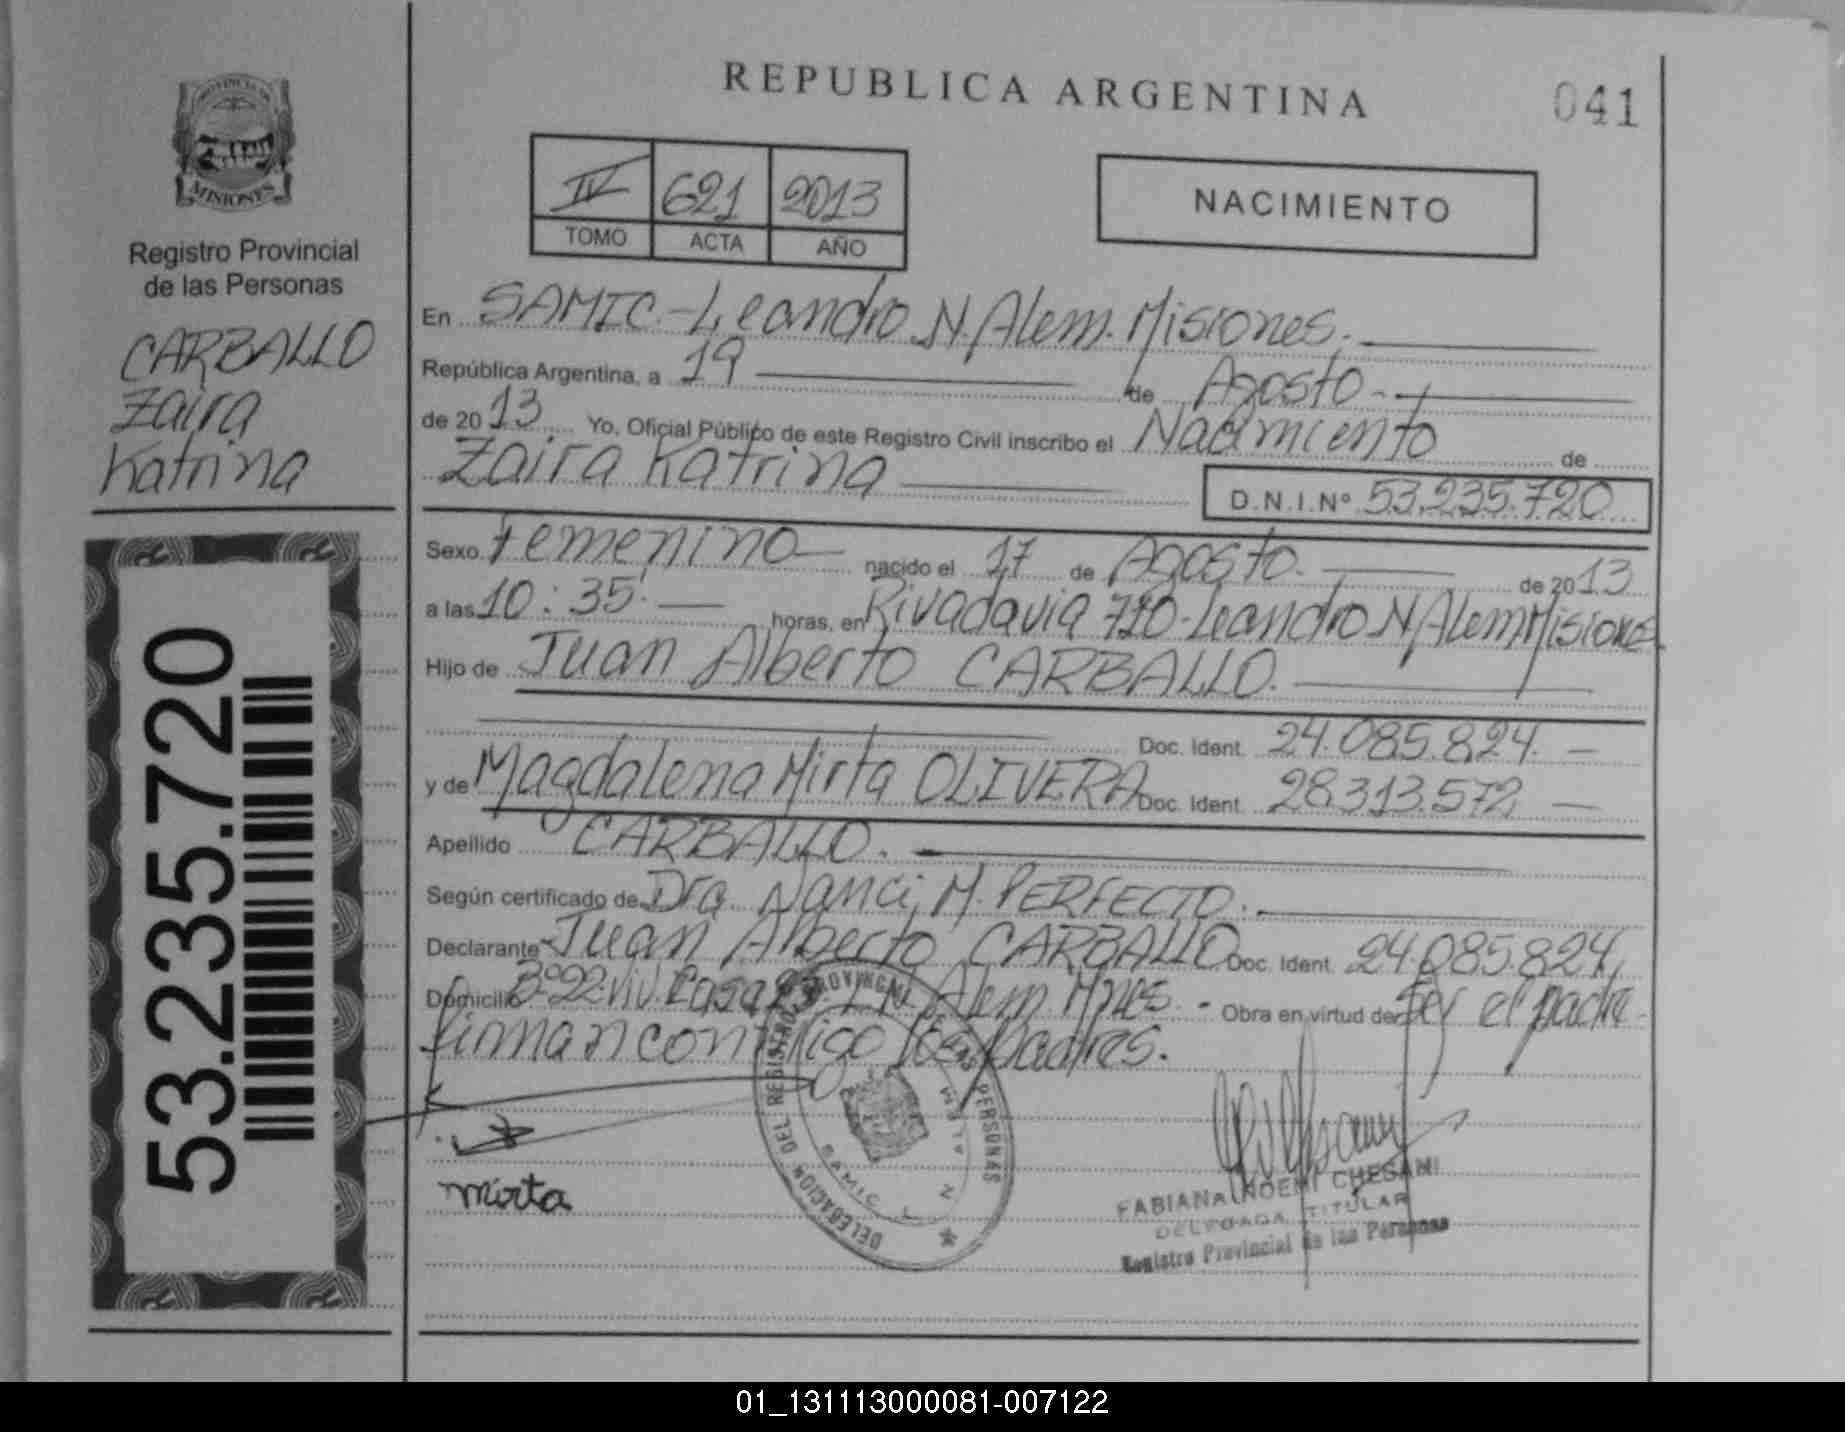 REPUBLICA ARGENTINA
041
PROVINCIA DE
MISIONES
Registro Provincial
de las Personas
CARBALLO
Zaira
Katrina
53.235.720
IV 621 2013
TOMO ACTA AÑO
NACIMIENTO
En SAMIC.-Leandro N. Alem. Misiones.
República Argentina, a 19 de Agosto.-
de 2013. Yo, Oficial Público de este Registro Civil inscribo el Nacimiento de
Zaira Katrina D.N.I.Nº 53.235.720
Sexo Femenino nacido el 17 de Agosto. de 2013
a las 10:35'. horas, en Rivadavia 710-Leandro N Alem Misiones
Hijo de Juan Alberto CARBALLO.
Doc. Ident. 24.085.824.
y de Magdalena Mirta OLIVERA Doc. Ident. 28.313.572
Apellido CARBALLO.
Según certificado de Dra. Nanci, M. PERFECTO.
Declarante Juan Alberto CARBALLO Doc. Ident. 24.085.824,
Domicilio Bº 92 viv. Casa Alem. Mnes. - Obra en virtud de Ser el padre-
firman conmigo los padres.
DELEGACION DEL REGISTRO PROVINCIAL DE LAS PERSONAS
SAMIC L N ALEM
mirta
FABIANA NOEMI CHESANI
DELEGADA TITULAR
Registro Provincial de las Personas
01_131113000081-007122